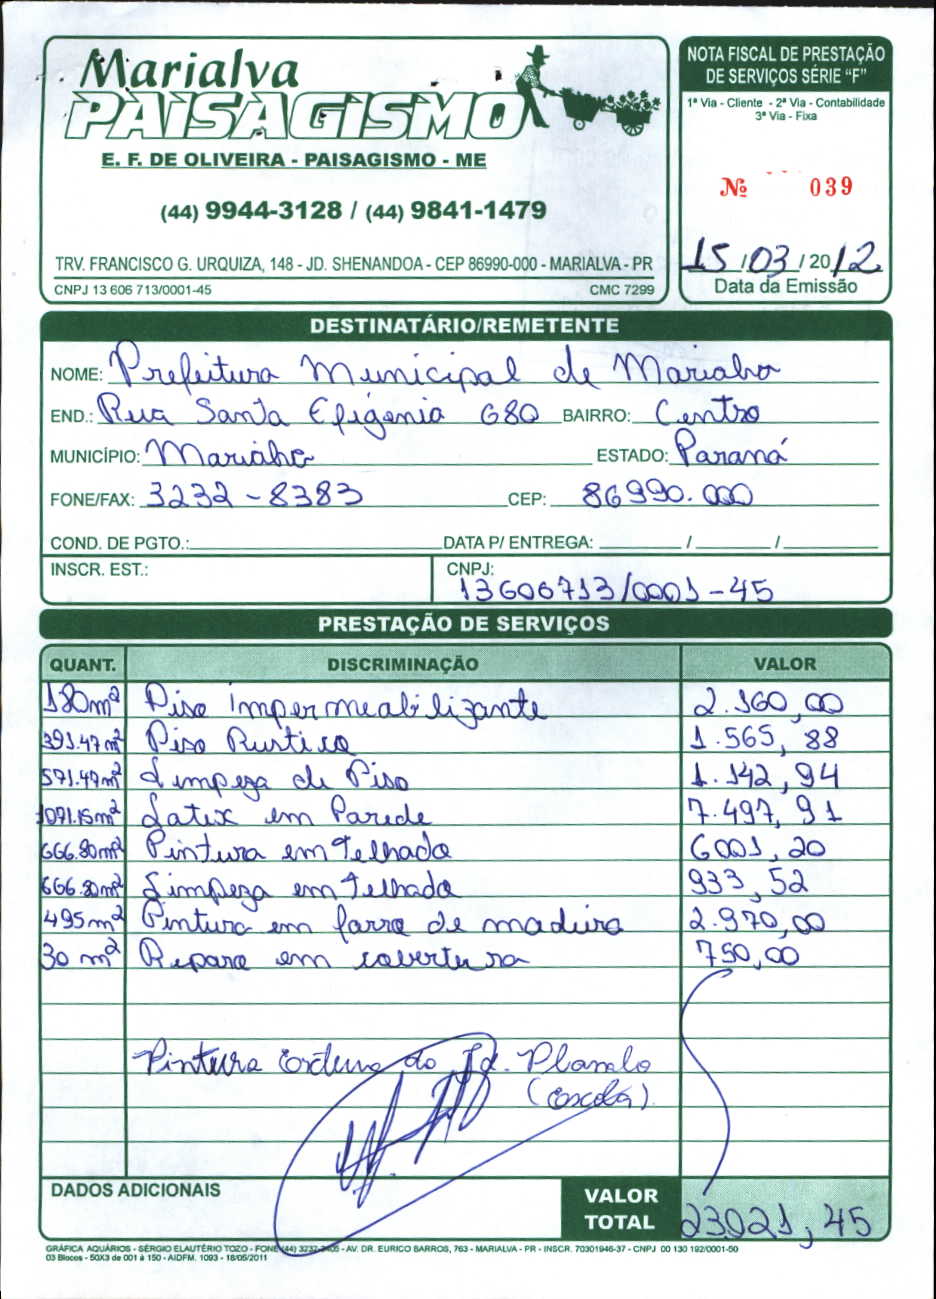 Marialva
PAISAGISMO
E. F. DE OLIVEIRA - PAISAGISMO - ME
(44) 9944-3128 / (44) 9841-1479
TRV. FRANCISCO G. URQUIZA, 148 - JD. SHENANDOA - CEP 86990-000 - MARIALVA - PR
CNPJ 13 606 713/0001-45 CMC 7299
NOTA FISCAL DE PRESTAÇÃO
DE SERVIÇOS SÉRIE "F"
1ª Via - Cliente - 2ª Via - Contabilidade
3ª Via - Fixa
Nº 039
15 / 03 / 2012
Data da Emissão
DESTINATÁRIO/REMETENTE
NOME: Prefeitura Municipal de Marialva
END.: Rua Santa Efigenia 680 BAIRRO: Centro
MUNICÍPIO: Marialva ESTADO: Paraná
FONE/FAX: 3232-8383 CEP: 86990.000
COND. DE PGTO.: DATA P/ ENTREGA: / /
INSCR. EST.: CNPJ:
13606713/0001-45
PRESTAÇÃO DE SERVIÇOS
QUANT. DISCRIMINAÇÃO VALOR
180m² Piso impermeabilizante 2.160,00
391.47m² Piso Rustico 1.565,88
571.47m² Limpeza de Piso 1.142,94
1071.15m² Latex em Parede 7.497,91
666.80m² Pintura em Telhado 6001,20
666.80m² Limpeza em Telhado 933,52
495m² Pintura em forro de madeira 2.970,00
30 m² Reparo em cobertura 750,00
Pintura Externa do Jd. Planalo
(Escola).
DADOS ADICIONAIS
VALOR
TOTAL 23021,45
GRÁFICA AQUÁRIOS - SÉRGIO ELAUTÉRIO TOZO - FONE (44) 3232-2405 - AV. DR. EURICO BARROS, 763 - MARIALVA - PR - INSCR. 70301946-37 - CNPJ 00 130 192/0001-50
03 Blocos - 50X3 de 001 à 150 - AIDFM. 1093 - 18/05/2011